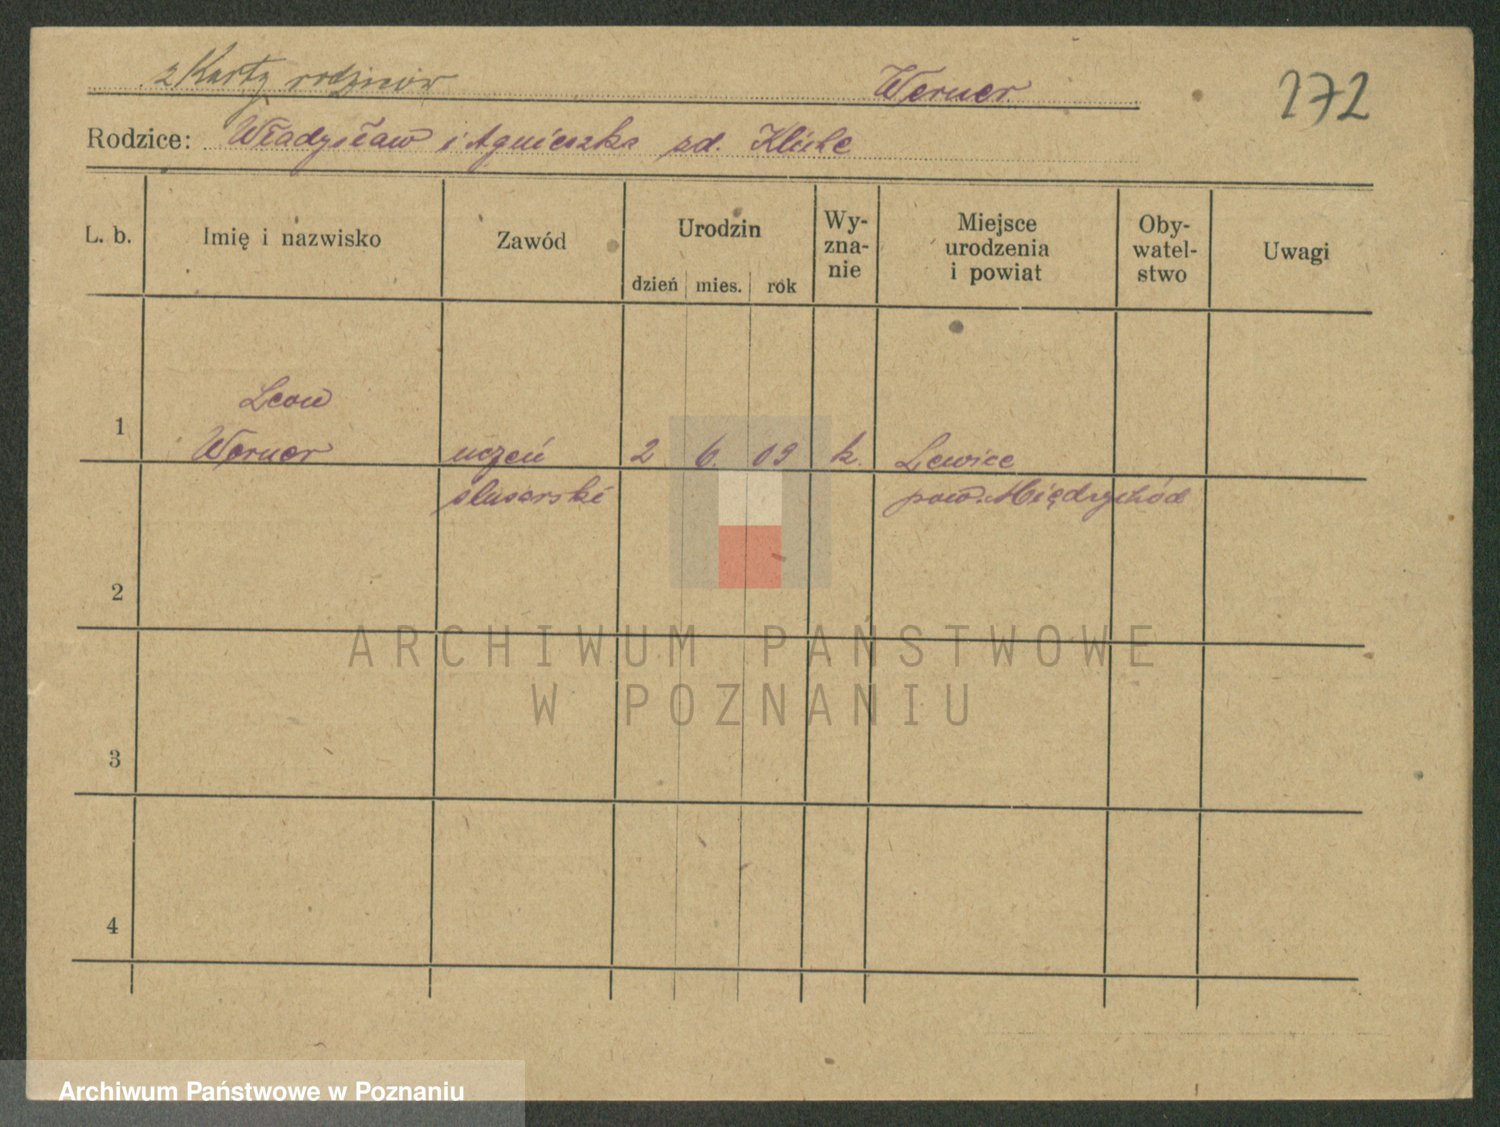 z Karty rodziców Werner 272
Rodzice: Władysław i Agnieszka zd. Kliche
L. b. Imię i nazwisko Zawód Urodzin dzień mies. rok Wy-
zna-
nie Miejsce
urodzenia
i powiat Oby-
watel-
stwo Uwagi
Leon
1 Werner uczeń 2 6. 09 k. Lewice
ślusarski pow. Międzychód
2
3
4
ARCHIWUM PAŃSTWOWE
W POZNANIU
Archiwum Państwowe w Poznaniu